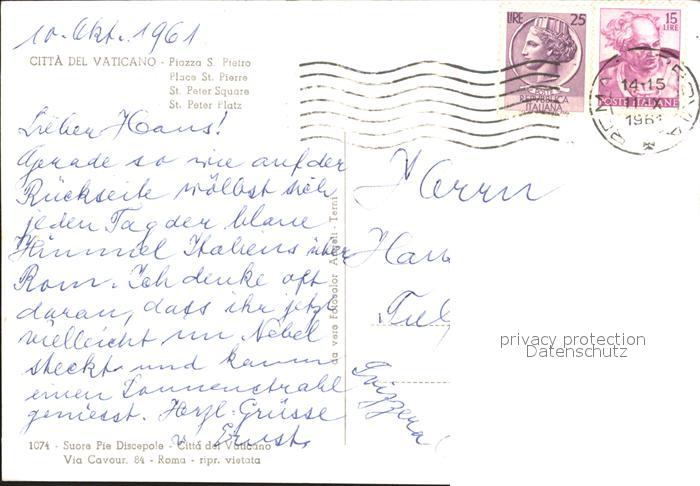 10. Okt. 1961
CITTÀ DEL VATICANO - Piazza S. Pietro
Place St. Pierre
St. Peter Square
St. Peter Platz
Lieber Hans!
Gerade so wie auf der
Rückseite wölbt sich
jeden Tag der blaue
Himmel Italiens über
Rom. Ich denke oft
daran, dass ihr jetzt
vielleicht im Nebel
steckt und kaum
einen Sonnenstrahl
geniesst. Herzl. Grüsse
v. Ernst.
1074 - Suore Pie Discepole - Città del Vaticano
Via Cavour, 84 - Roma - ripr. vietata
da vera Fotocolor Angeli - Terni
LIRE 25
POSTE
REPVBBLICA
ITALIANA
15
LIRE
POSTE ITALIANE
ROMA
14-15
1961
Herrn
Han
Svizzera
privacy protection
Datenschutz